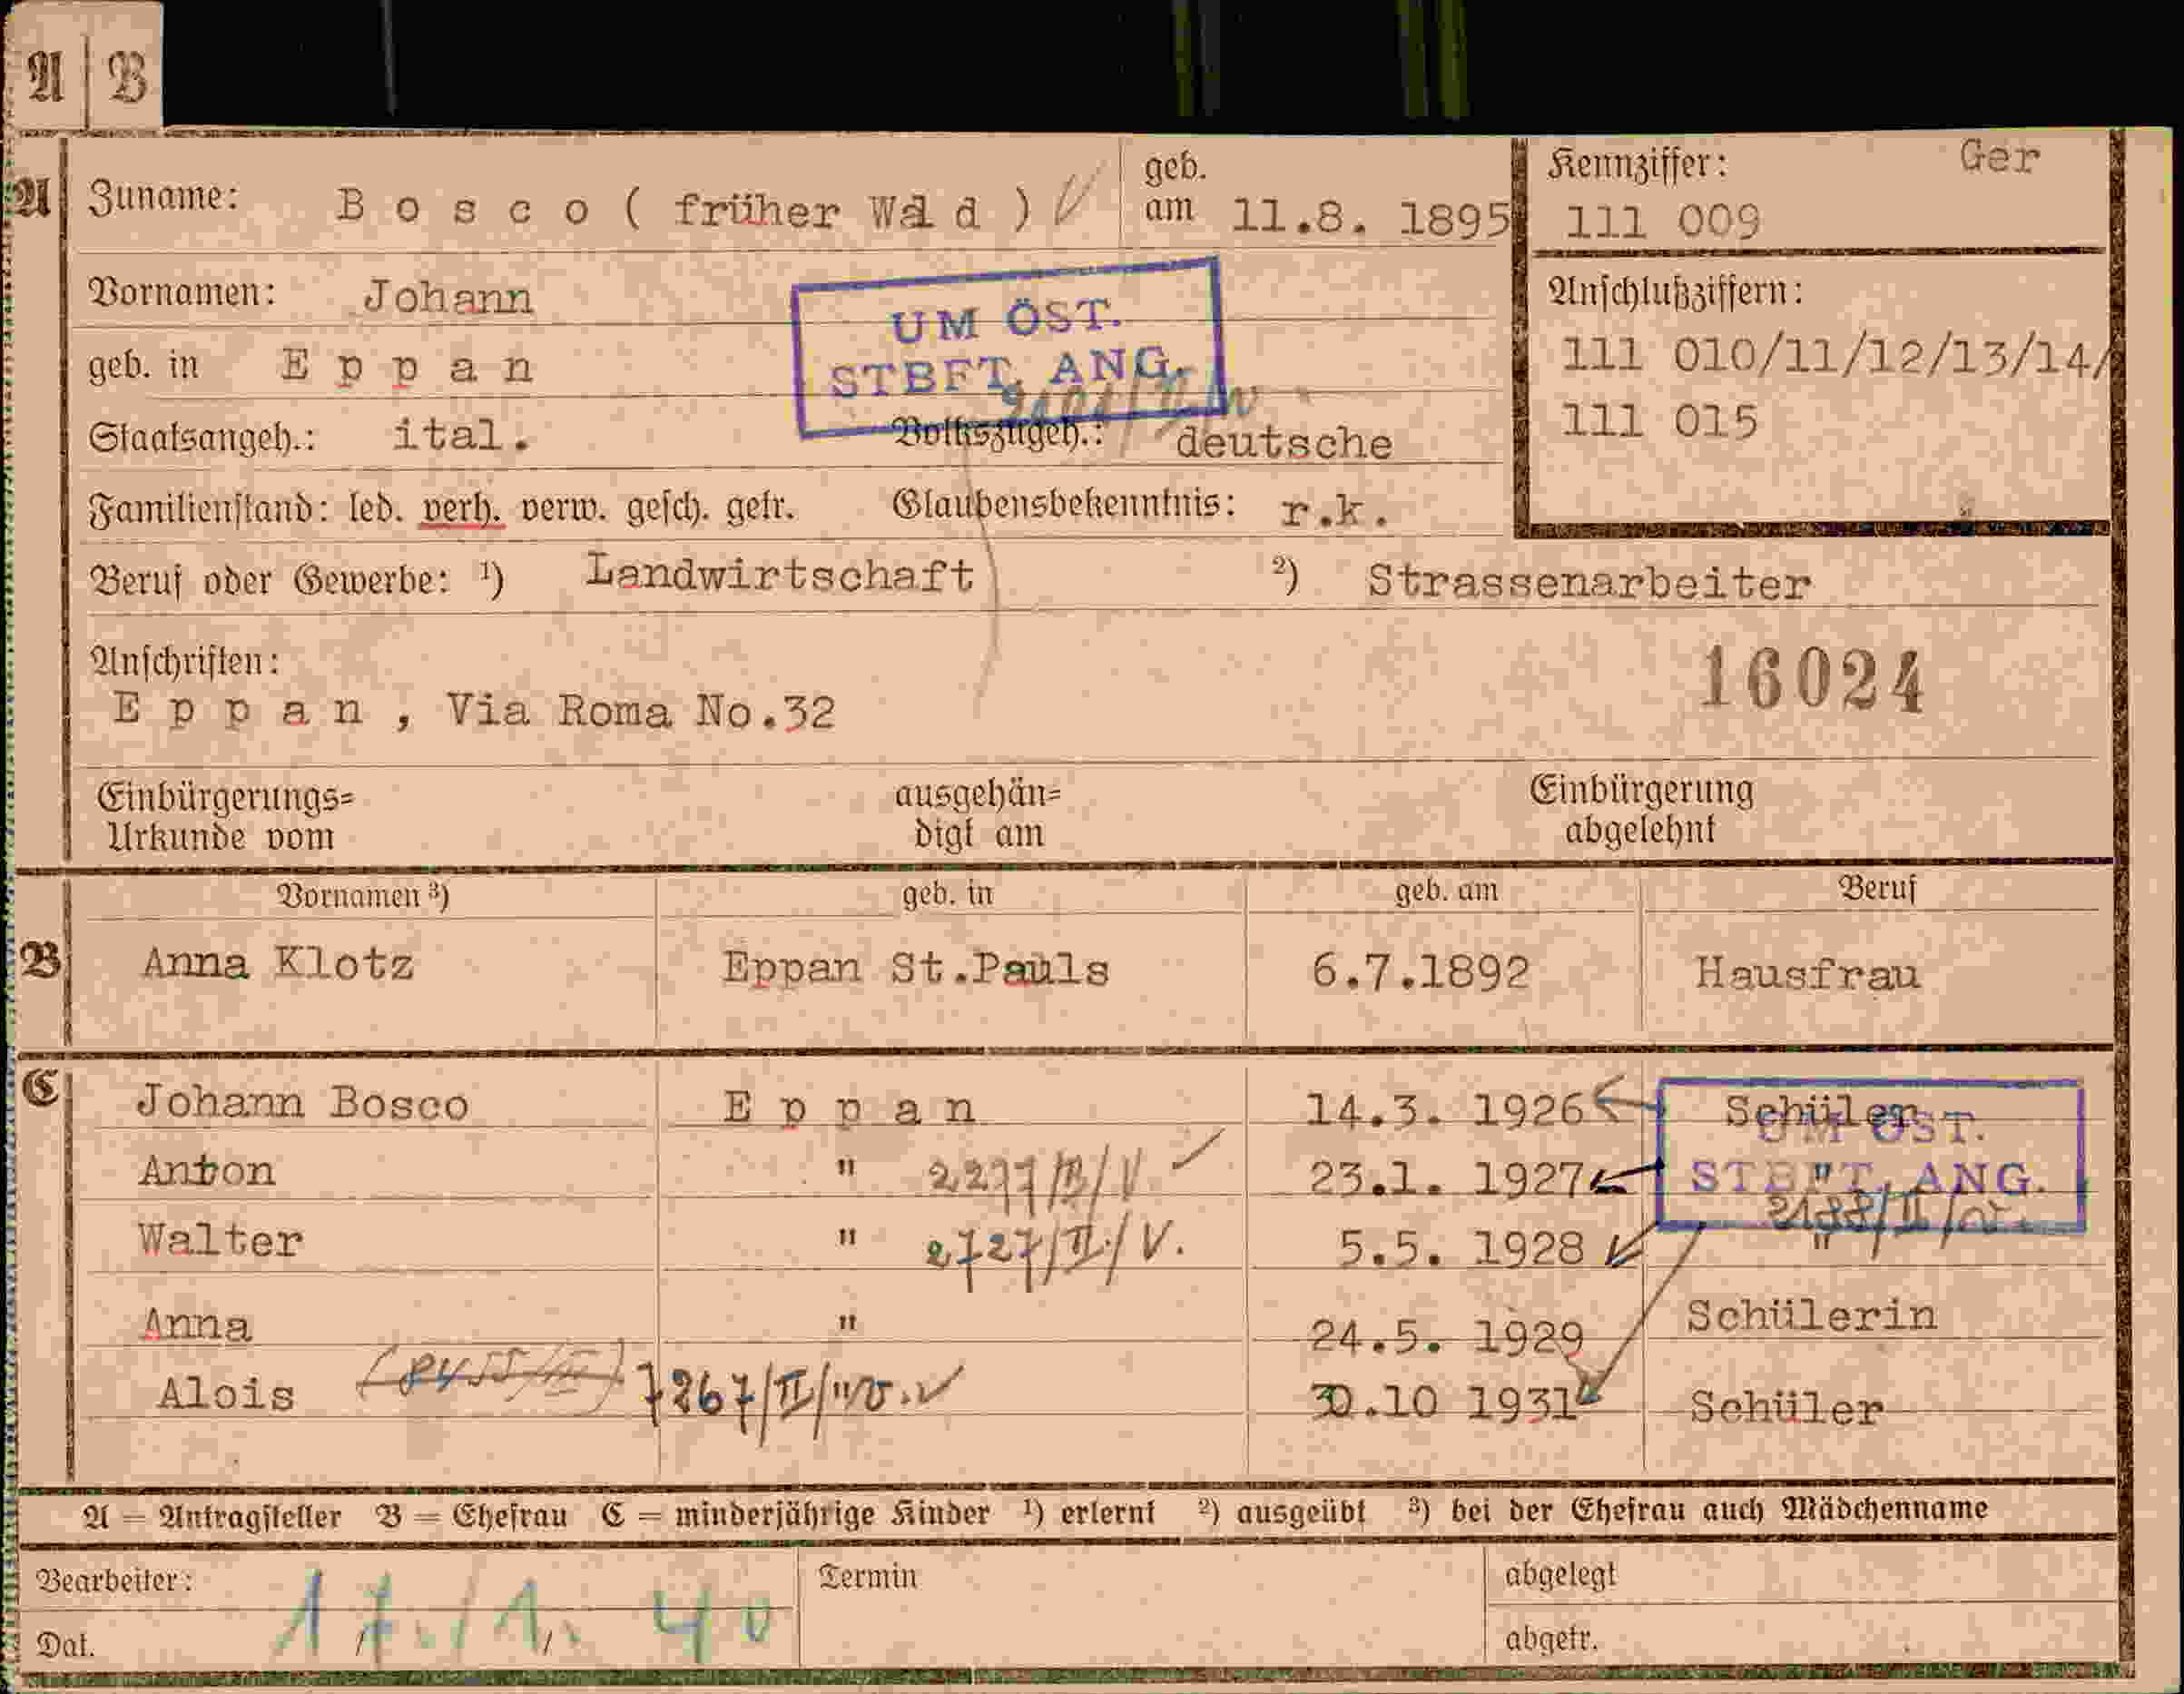 A | B
A Zuname: B o s c o ( früher Wald ) geb. am 11.8. 1895
Kennziffer: Ger
111 009
Vornamen: Johann
UM ÖST.
STBFT. ANG.
Anschlußziffern:
111 010/11/12/13/14/
111 015
geb. in E p p a n
Staatsangeh.: ital. Volkszugeh.: deutsche
Familienstand: led. verh. verw. gesch. getr. Glaubensbekenntnis: r.k.
Beruf oder Gewerbe: ¹) Landwirtschaft ²) Strassenarbeiter
Anschriften:
16024
E p p a n , Via Roma No.32
Einbürgerungs=
Urkunde vom
ausgehän=
digt am
Einbürgerung
abgelehnt
Vornamen ³) geb. in geb. am Beruf
B Anna Klotz Eppan St.Pauls 6.7.1892 Hausfrau
C Johann Bosco E p p a n 14.3. 1926 Schüler
UM ÖST.
STBFT. ANG.
Anton " 2277/II/V 23.1. 1927 "
Walter " 2727/II/V. 5.5. 1928 "
Anna " 24.5. 1929 Schülerin
Alois 7267/II/ 30.10 1931 Schüler
A = Antragsteller B = Ehefrau C = minderjährige Kinder ¹) erlernt ²) ausgeübt ³) bei der Ehefrau auch Mädchenname
Bearbeiter: Termin abgelegt
Dat. 17./1. 40 abgetr.